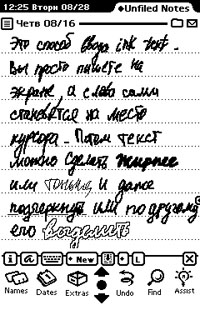 12:25 Вторн 08/28 Unfiled Notes
Четв 08/16
Это способ ввода ink text.
Вы просто пишете на
экране, а слова сами
становятся на место
курсора. Потом текст
можно сделать жирнее
или тоньше и даже
подчеркнуть или по другому
его выделить
i a New L
Names Dates Extras Undo Find Assist